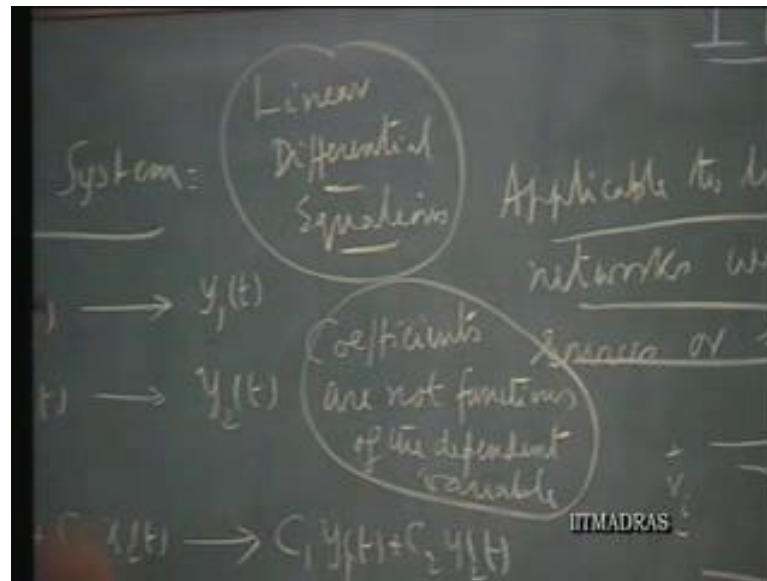 Linear
Differential
Equations
System:
Applicable to
networks
sources or
→ y₁(t)
t) → y₂(t)
Coefficients
are not functions
of the dependent
variable
+
vᵢ
-
+ C x₂(t) → C₁ y₁(t) + C₂ y₂(t)
IITMADRAS